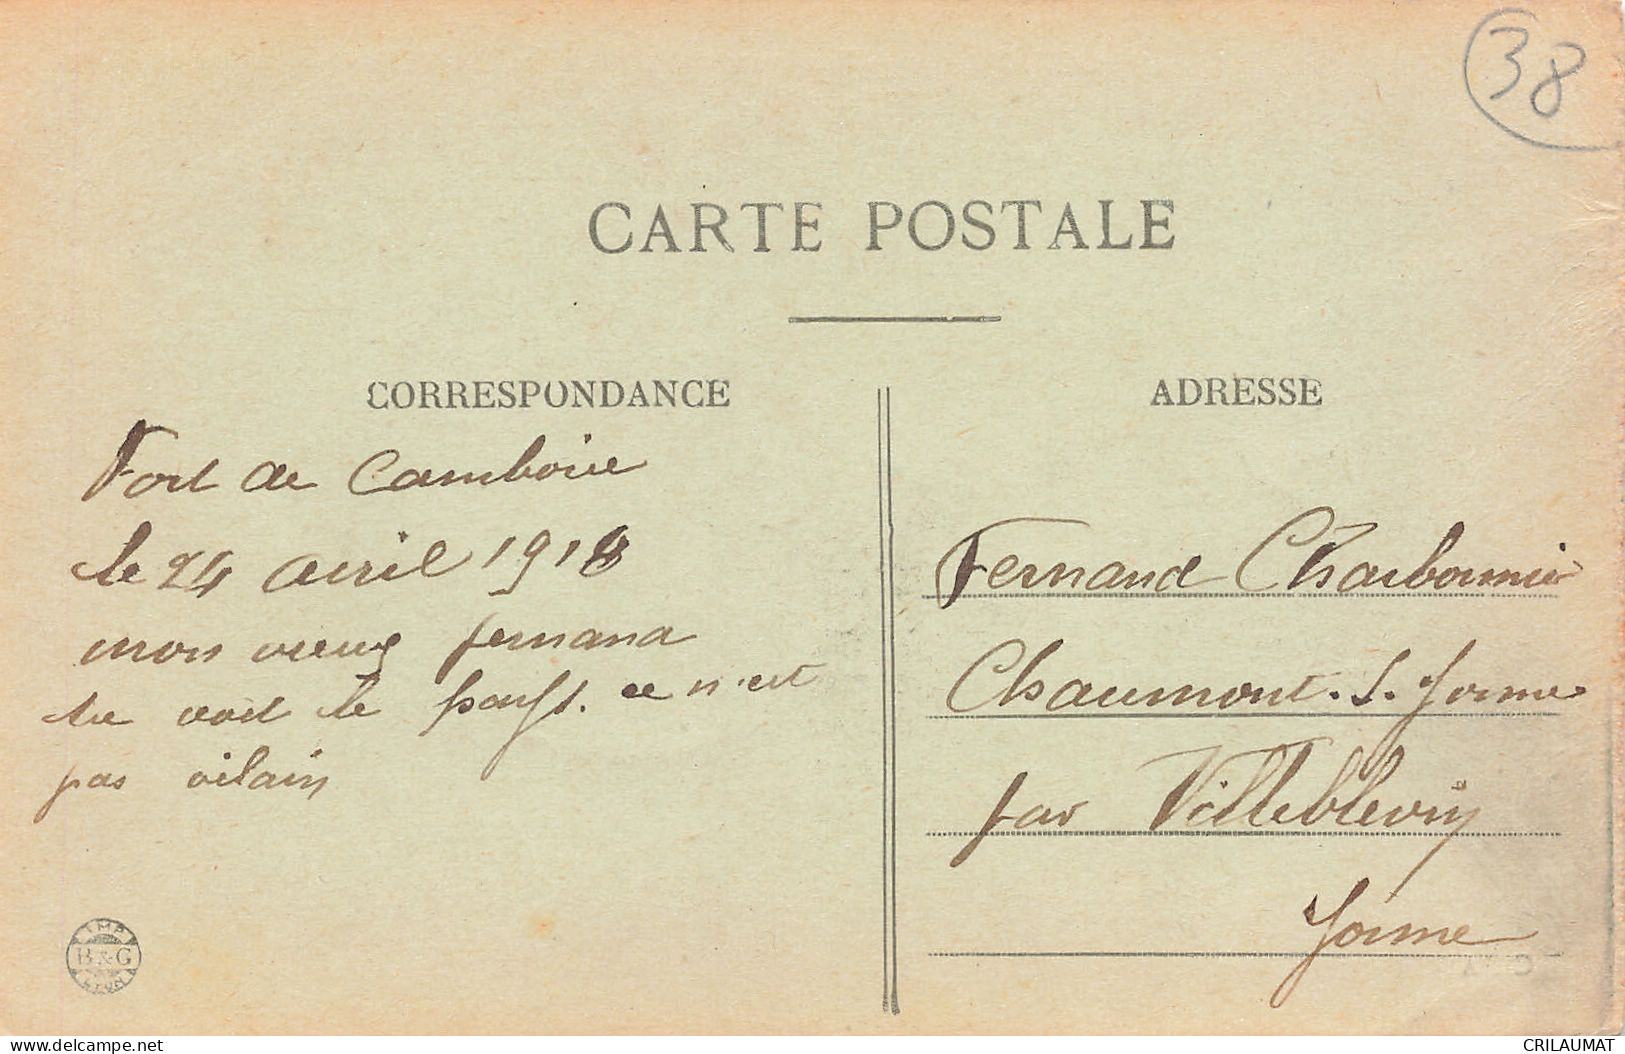 38
CARTE POSTALE
CORRESPONDANCE
Fort de Comboire
le 24 avril 1918
mon vieux fernand
tu voit le pays. ce n'est
pas vilain
ADRESSE
Fernand Charbonnier
Chaumont. s. Yonne
par Villeblevin
Yonne
IMP
B & G
LYON
delcampe.net
CRILAUMAT